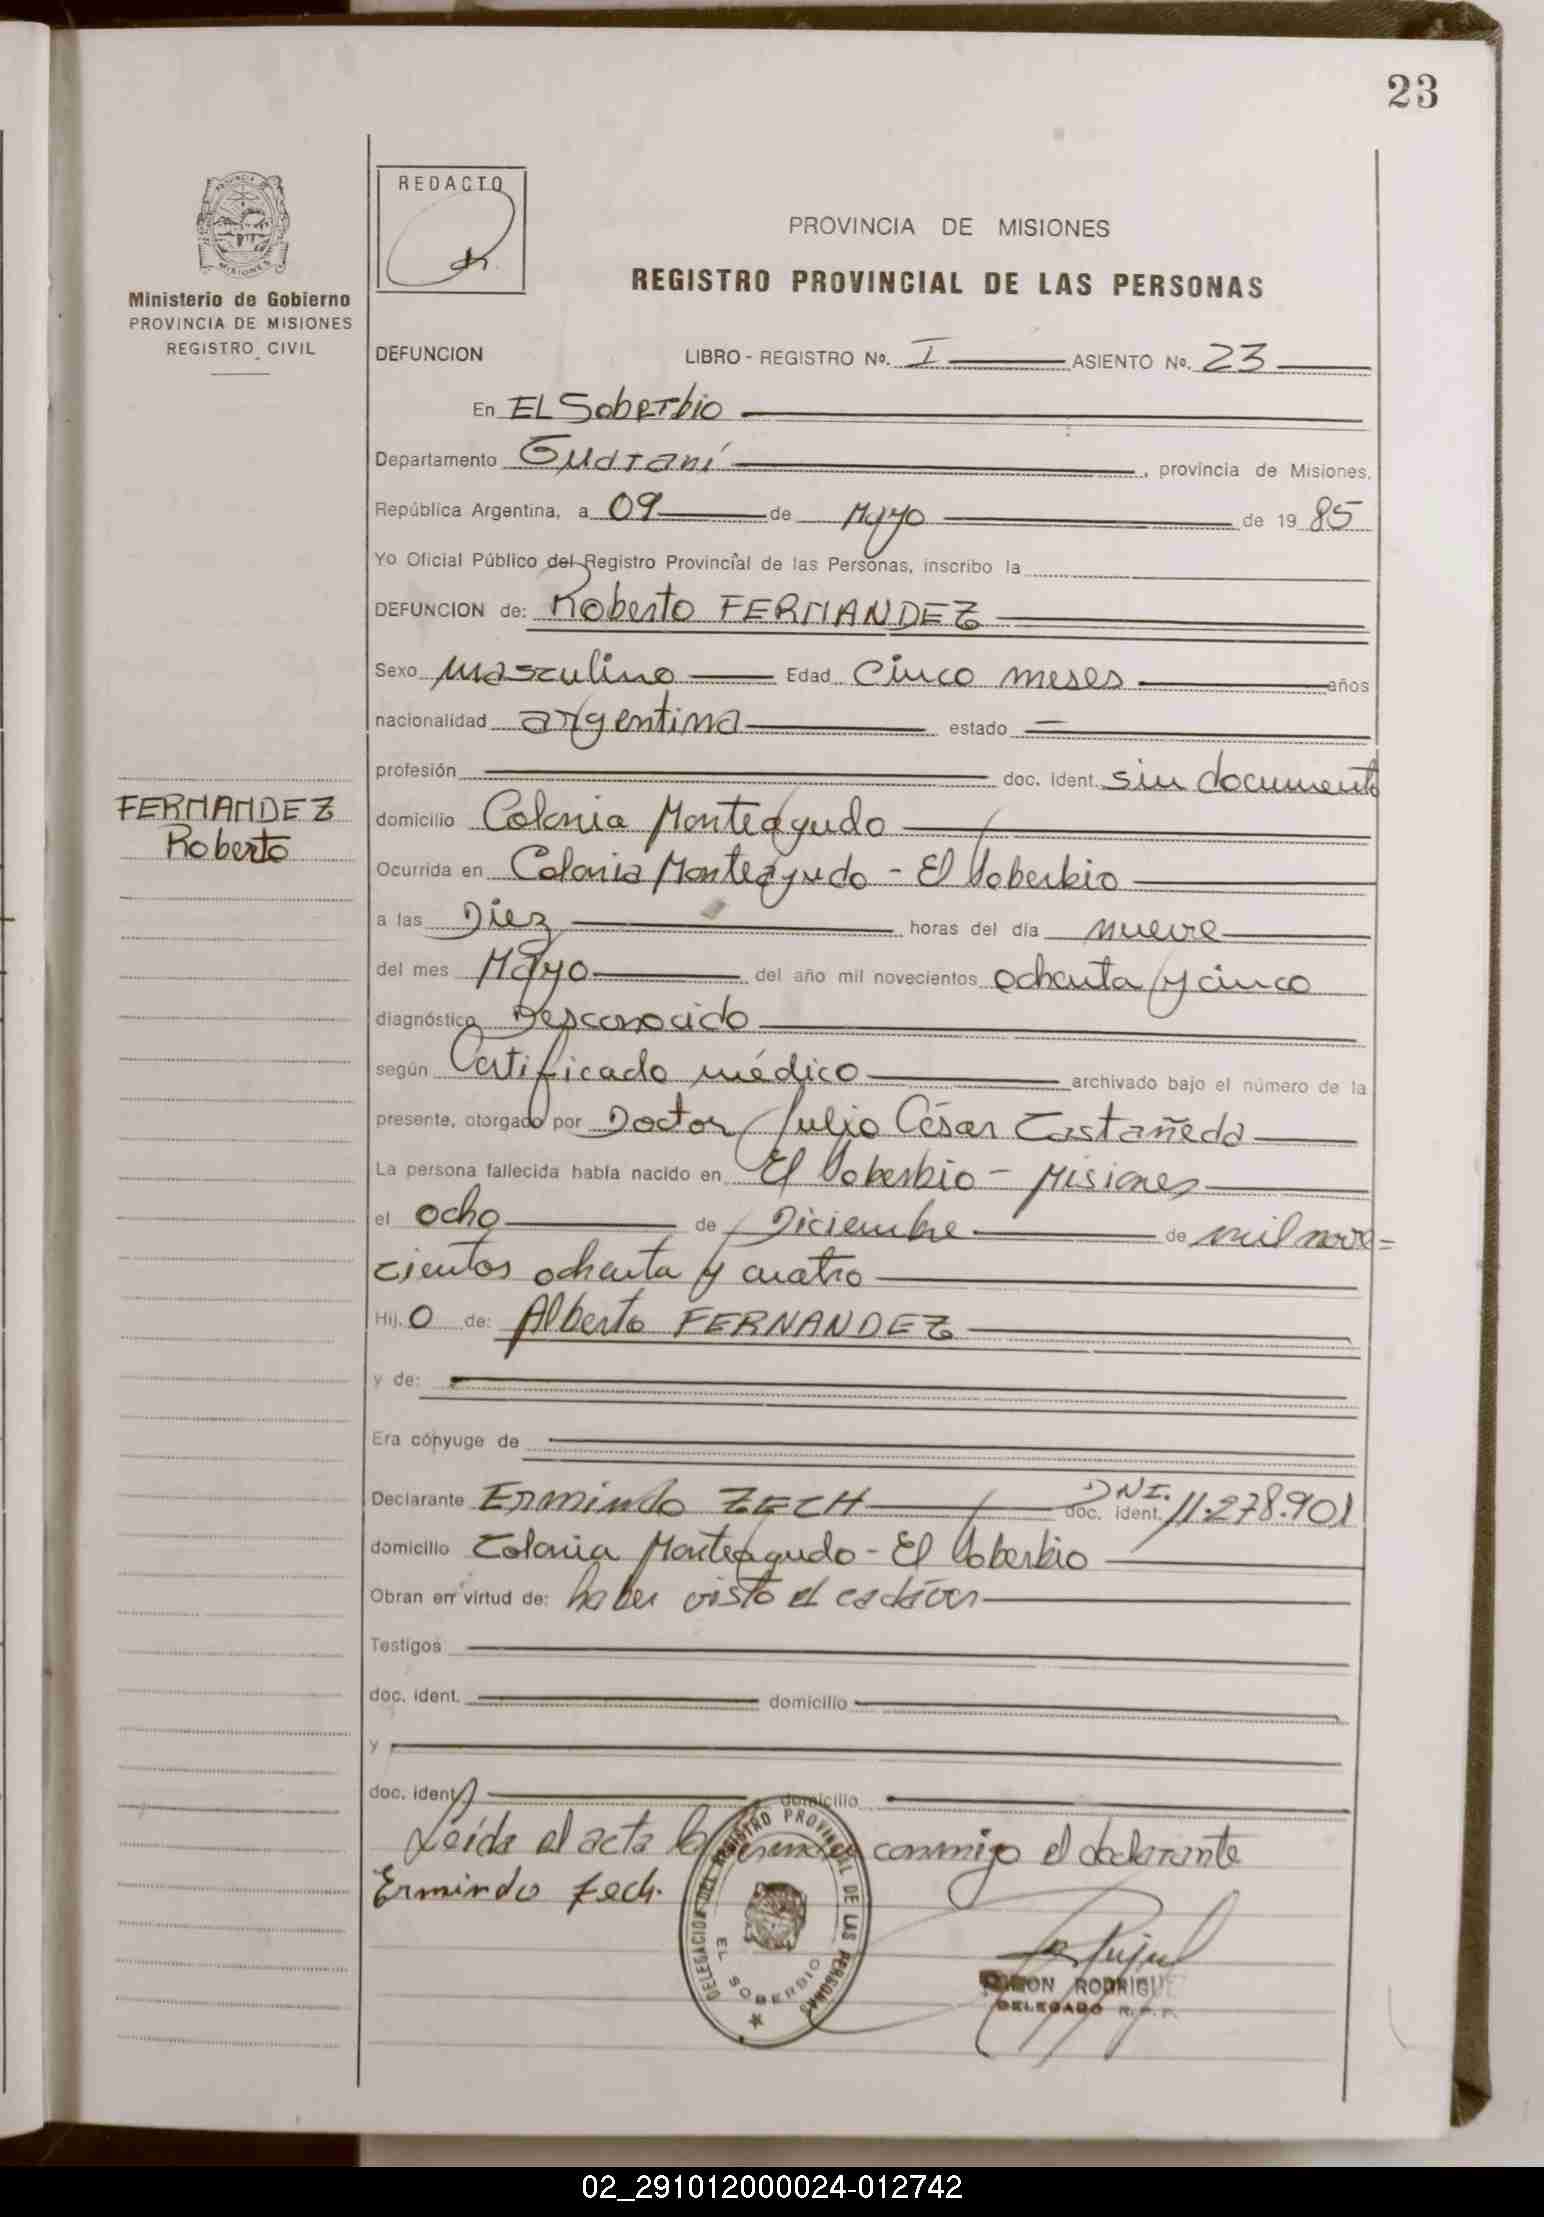 23
REDACTO
PROVINCIA DE MISIONES
REGISTRO PROVINCIAL DE LAS PERSONAS
Ministerio de Gobierno
PROVINCIA DE MISIONES
REGISTRO CIVIL
DEFUNCION LIBRO - REGISTRO Nº. I ASIENTO Nº. 23
En EL Soberbio
Departamento Guaraní, provincia de Misiones,
República Argentina, a 09 de Mayo de 19 85
Yo Oficial Público del Registro Provincial de las Personas, inscribo la
DEFUNCION de: Roberto FERNANDEZ
Sexo Masculino Edad Cinco meses años
nacionalidad argentina estado —
profesión doc. ident. sin documento
FERNANDEZ
Roberto
domicilio Colonia Monteagudo
Ocurrida en Colonia Monteagudo - El Soberbio
a las Diez horas del día nueve
del mes Mayo del año mil novecientos ochenta y cinco
diagnóstico Desconocido
según Certificado médico archivado bajo el número de la
presente, otorgado por Doctor Julio César Castañeda
La persona fallecida había nacido en El Soberbio - Misiones
el ocho de Diciembre de mil nove=
cientos ochenta y cuatro
Hij. O de: Alberto FERNANDEZ
y de:
Era cónyuge de
Declarante Ermindo ZECH doc. ident. DNI. 11.278.901
domicilio Colonia Monteagudo - El Soberbio
Obran en virtud de: haber visto el cadáver
Testigos
doc. ident. domicilio
y
doc. ident. domicilio
Leída el acta la conmigo el declarante
Ermindo Zech.
DELEGACION DEL REGISTRO PROVINCIAL DE LAS PERSONAS
EL SOBERBIO
RODRIGUE
DELEGADO R.P.P.
02_291012000024-012742